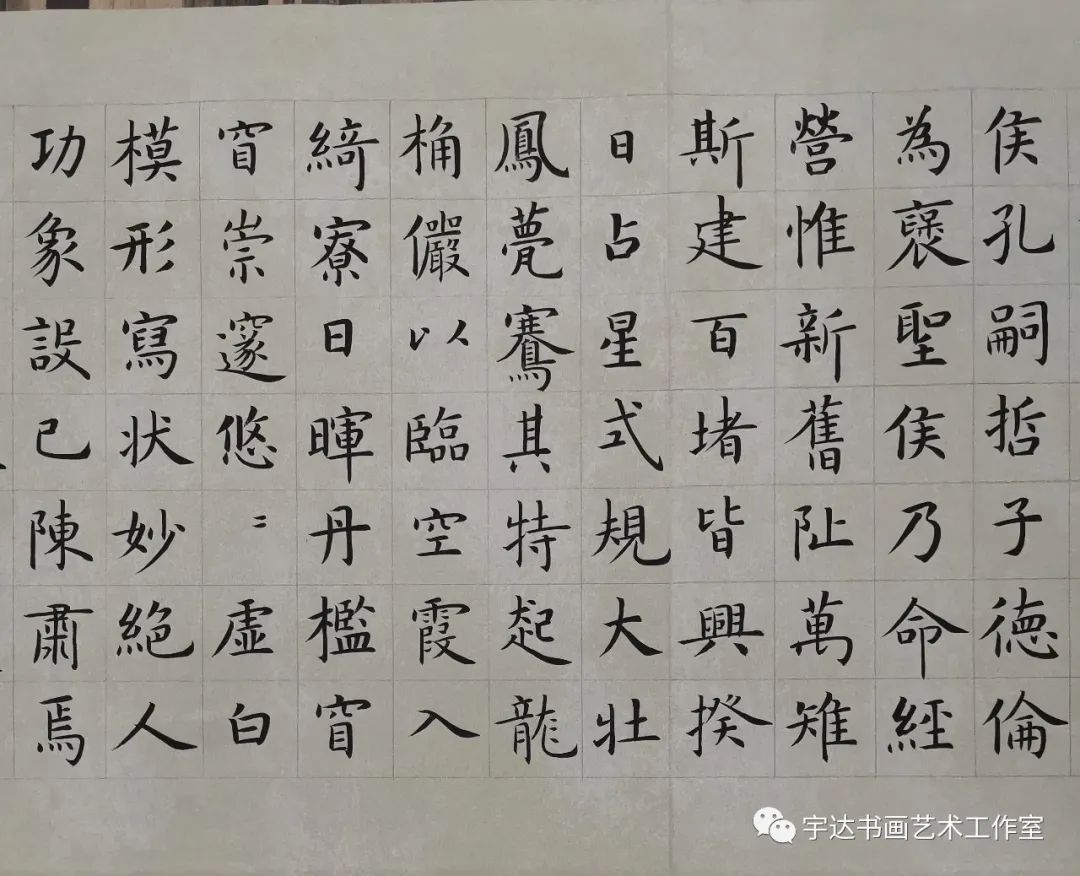 侯孔嗣哲子徳倫
為襃聖侯乃命經
營惟新舊阯萬雉
斯建百堵皆興揆
日占星式規大壯
鳳甍鶱其特起龍
桷儼以臨空霞入
綺寮日暉丹檻窅
窅崇邃悠〻虛白
模形寫状妙絕人
功象設已陳肅焉
宇达书画艺术工作室